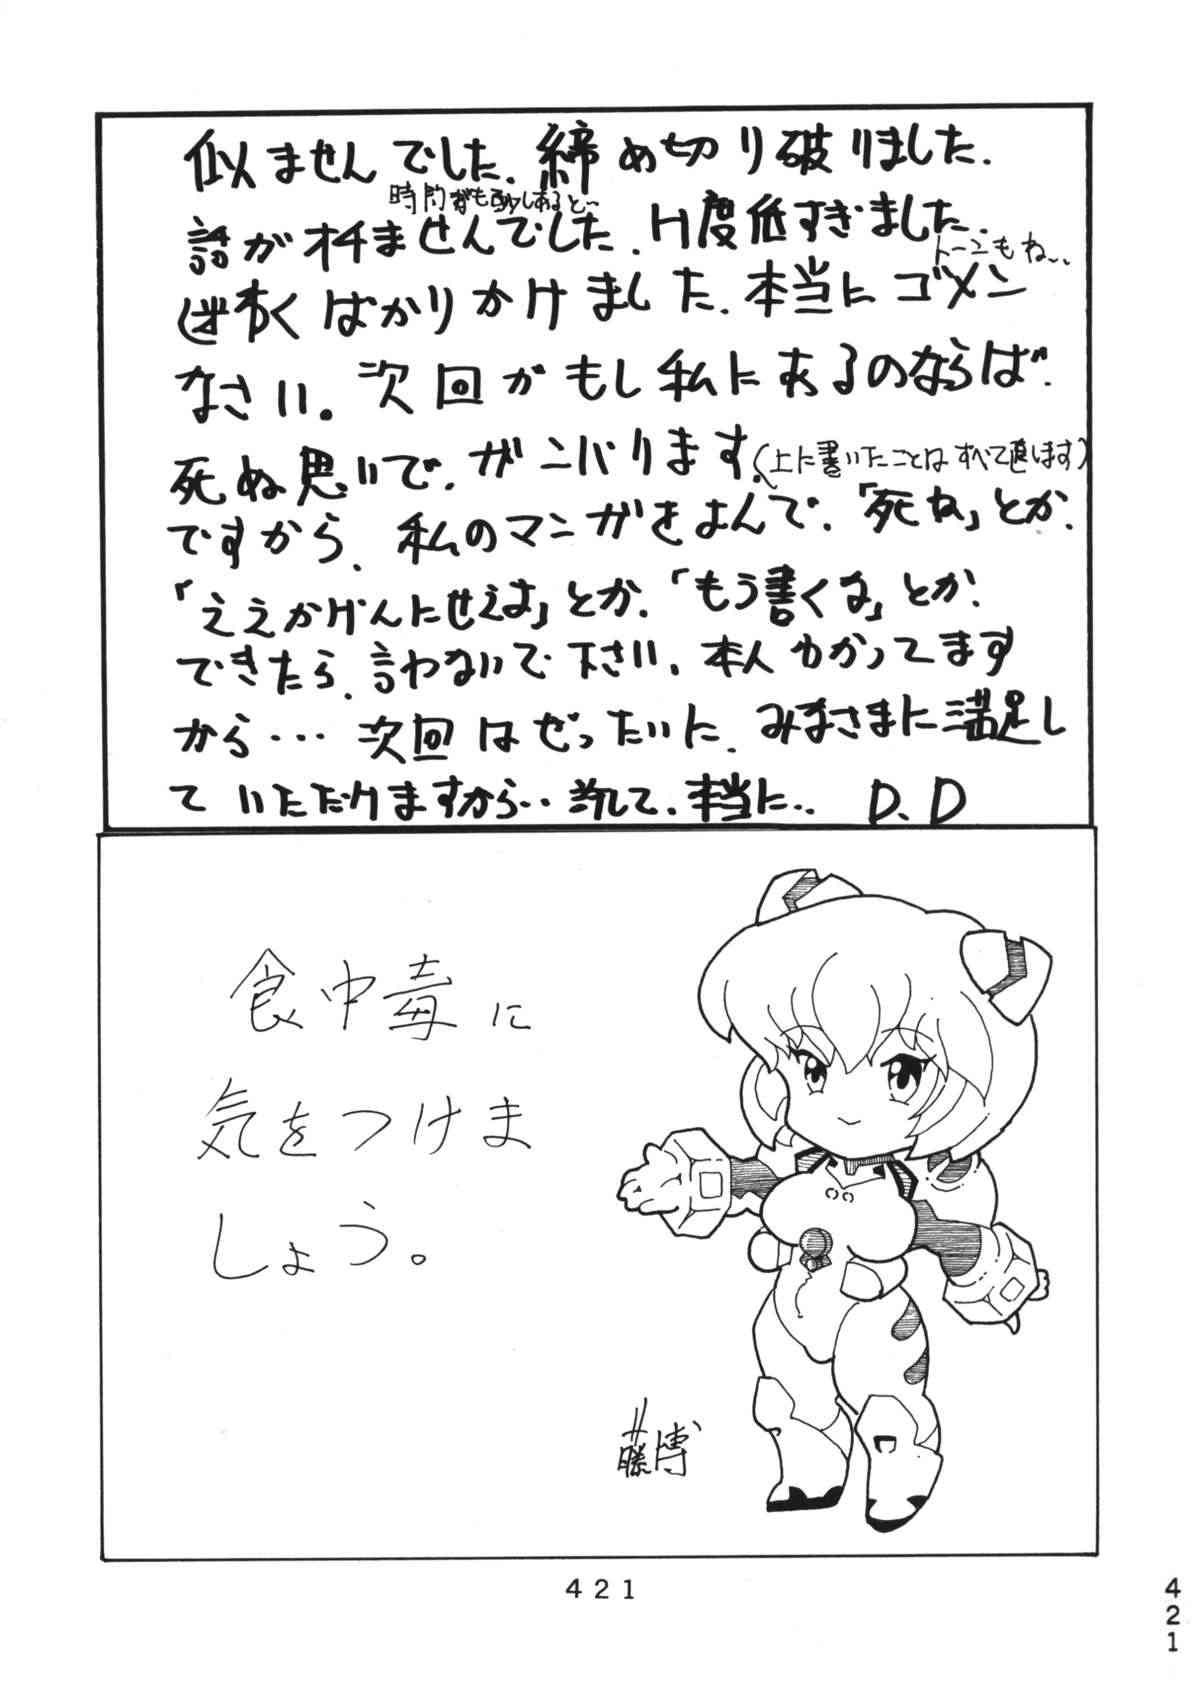 似ませんでした。締め切り破りました。
時間がもう少しあると〜
話がオチませんでした。H度低すぎました。
トーンもね...
迷わくばかりかけました。本当にゴメン
なさい。次回がもし私にあるのならば、
死ぬ思いで、ガンバります。(上に書いたことはすべて直します)
ですから、私のマンガをよんで、「死ね」とか、
「ええかげんにせえよ」とか、「もう書くな」とか、
できたら、言わないで下さい。本人わかってます
から... 次回はぜったいに、みなさまに満足し
ていただけますから.. 本当に.. D.D
食中毒に
気をつけま
しょう。
藤博
421
421